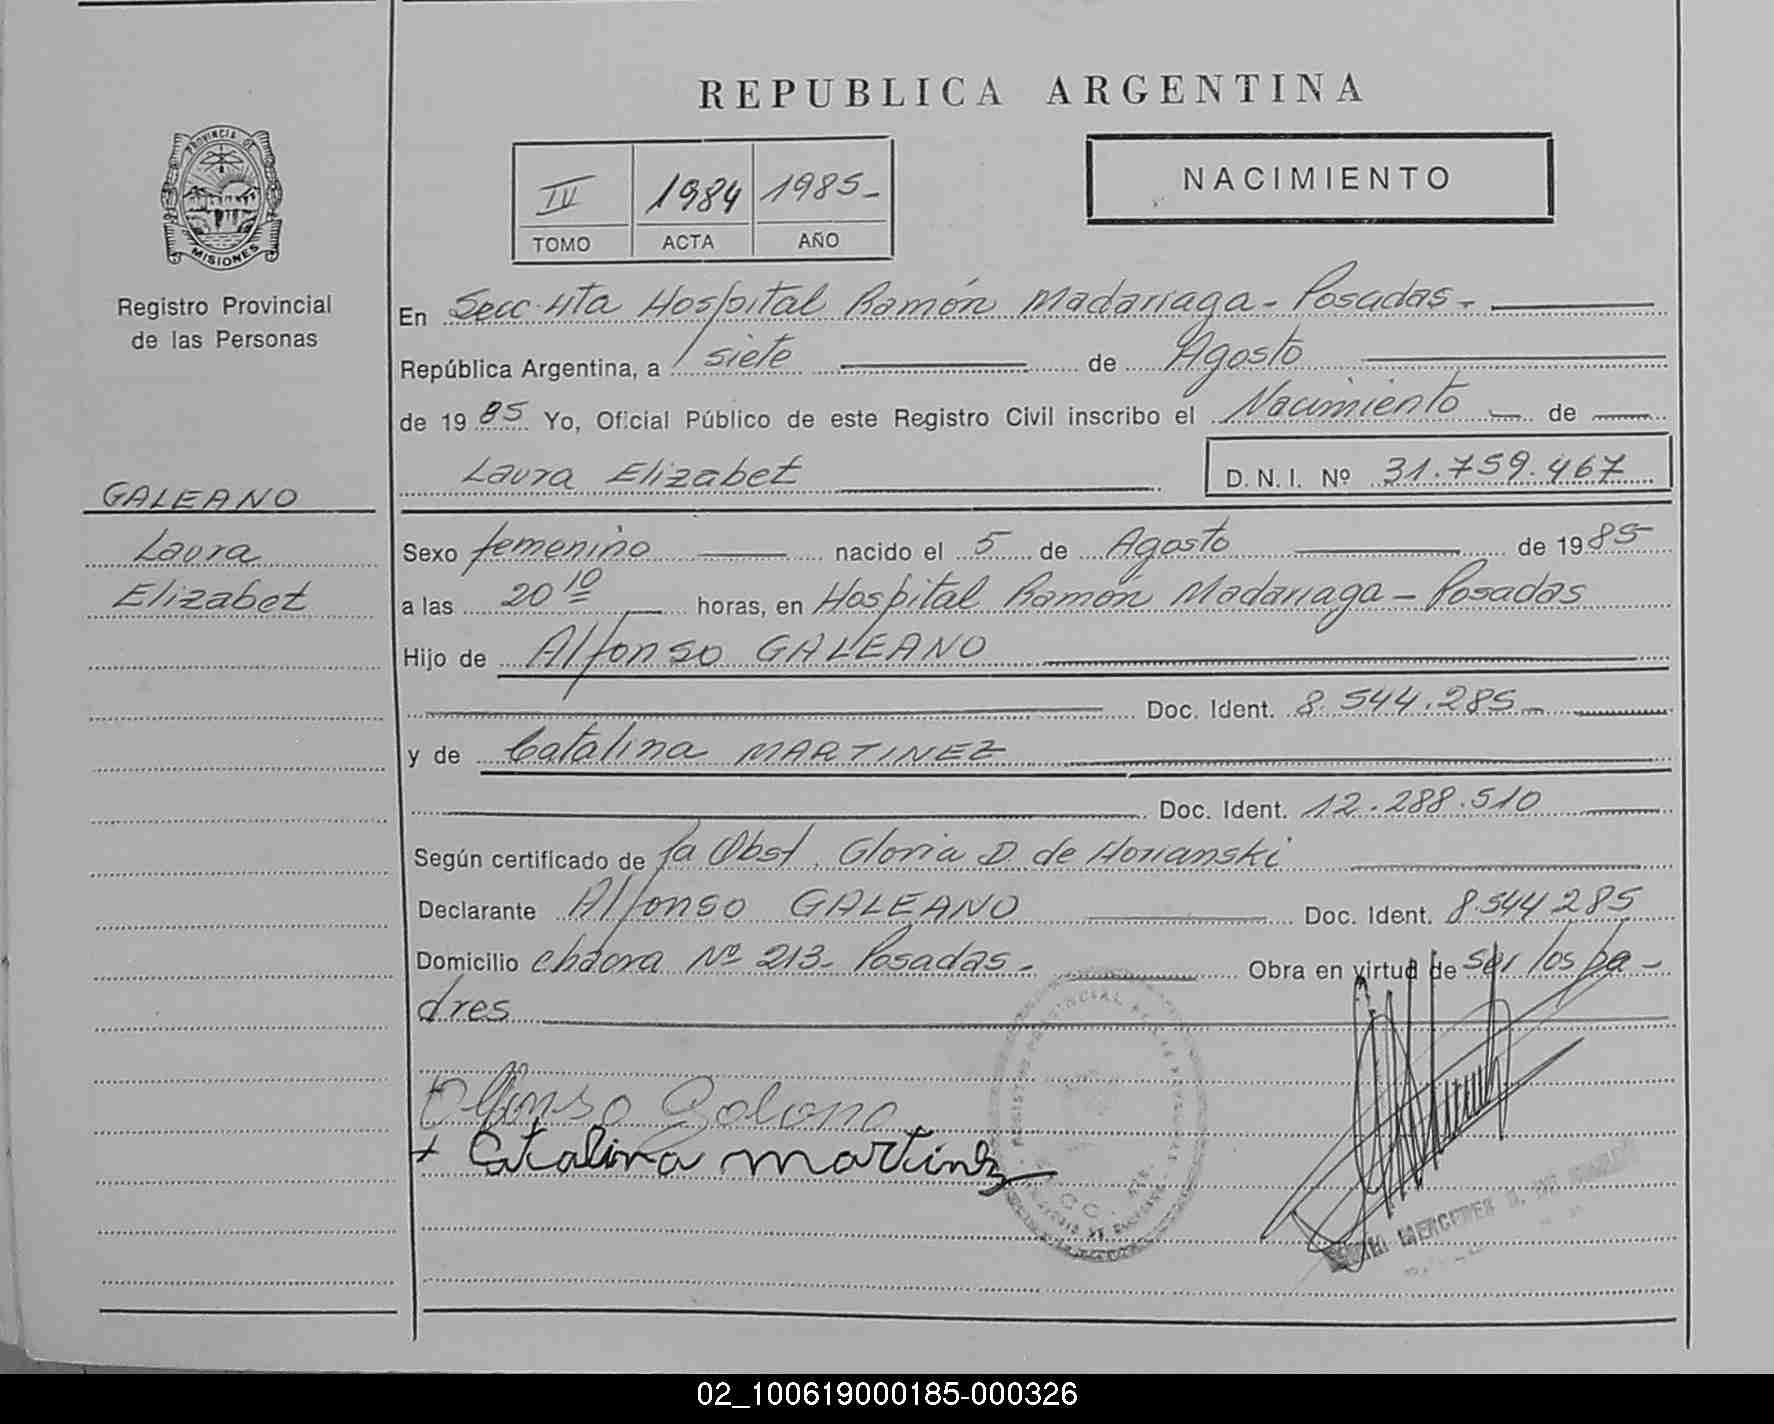 REPUBLICA ARGENTINA
PROVINCIA DE
MISIONES
Registro Provincial
de las Personas
IV 1984 1985-
TOMO ACTA AÑO
NACIMIENTO
En Secc. 4ta Hospital Ramón Madariaga - Posadas -
República Argentina, a siete de Agosto
de 1985 Yo, Oficial Público de este Registro Civil inscribo el Nacimiento de
Laura Elizabet D. N. I. Nº 31.759.467
GALEANO
Laura
Elizabet
Sexo femenino nacido el 5 de Agosto de 1985
a las 20 10 horas, en Hospital Ramón Madariaga - Posadas
Hijo de Alfonso GALEANO
Doc. Ident. 8.544.285
y de Catalina MARTINEZ
Doc. Ident. 12.288.510
Según certificado de la Obst. Gloria D. de Horianski
Declarante Alfonso GALEANO Doc. Ident. 8.544.285
Domicilio chacra Nº 213- Posadas - Obra en virtud de ser los pa-
dres
Alfonso Galeano
+ Catalina martinez
MERCEDES
02_100619000185-000326